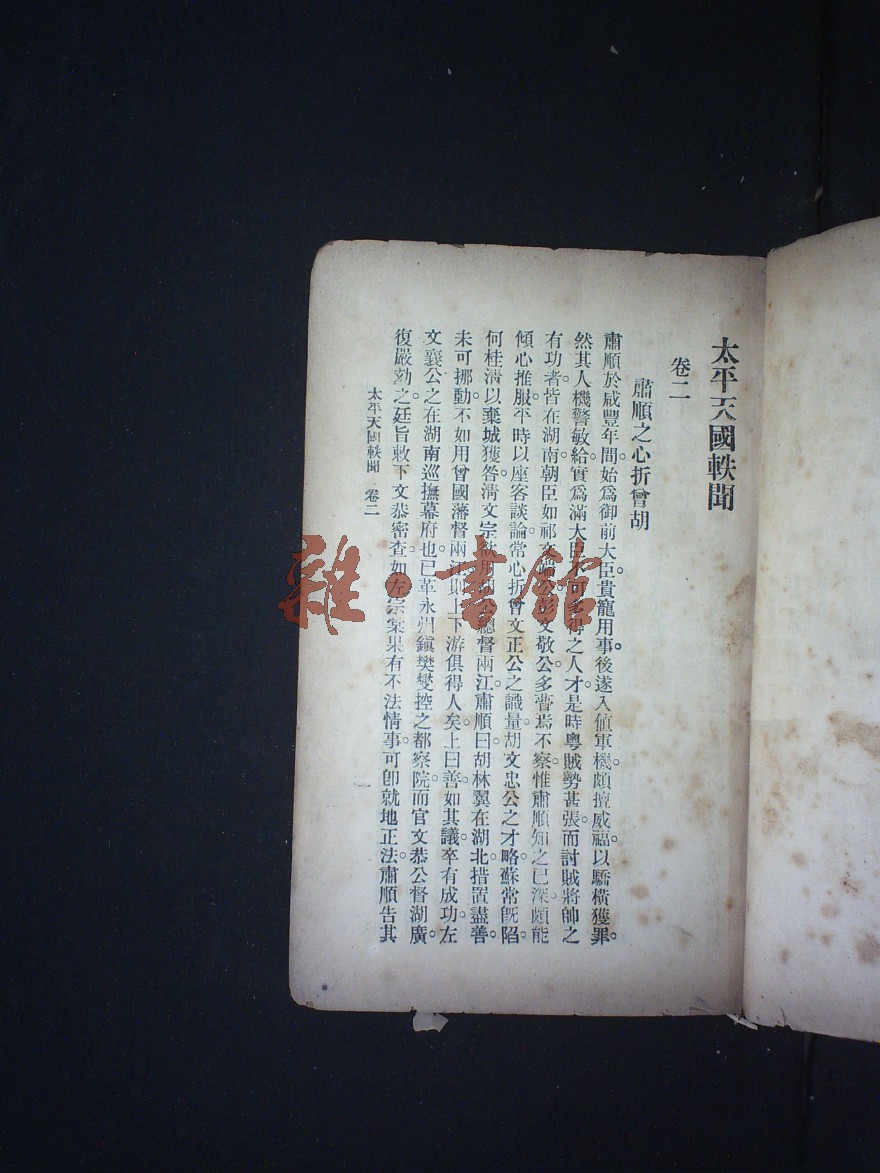 太平天國軼聞
卷二
肅順之心折曾胡
肅順於咸豐年間。始爲御前大臣。貴寵用事。後遂入値軍機。頗擅威福。以驕橫獲罪。
然其人機警敏給。實爲滿大臣不可多得之人才。是時粵賊勢甚張。而討賊將帥之
有功者。皆在湖南。朝臣如祁文端公彭文敬公多瞢焉不察。惟肅順知之已深。頗能
傾心推服。平時以座客談論。常心折曾文正公之識量。胡文忠公之才略。蘇常旣陷。
何桂淸以棄城獲咎。淸文宗欲用胡公總督兩江。肅順曰。胡林翼在湖北。措置盡善。
未可挪動。不如用曾國藩督兩江。則上下游俱得人矣。上曰善。如其議。卒有成功。左
文襄公之在湖南巡撫幕府也。已革永州鎭樊燮控之都察院。而官文恭公督湖廣。
復嚴劾之。廷旨敕下文恭密查。如左宗棠果有不法情事。可卽就地正法。肅順告其
太平天國軼聞 卷二
一
雜·書館